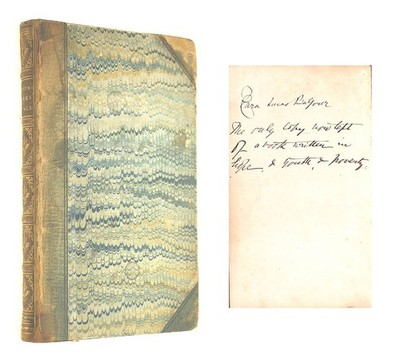 Clara Lucas Balfour
The only Copy now left
of a book written in
hope, & Youth, & Poverty.